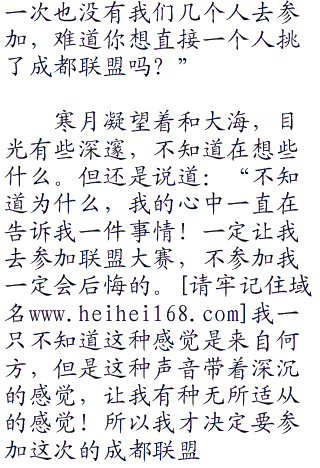 一次也没有我们几个人去参
加，难道你想直接一个人挑
了成都联盟吗？”
寒月凝望着和大海，目
光有些深邃，不知道在想些
什么。但还是说道：“不知
道为什么，我的心中一直在
告诉我一件事情！一定让我
去参加联盟大赛，不参加我
一定会后悔的。[请牢记住域
名www.heihei168.com]我一
只不知道这种感觉是来自何
方，但是这种声音带着深沉
的感觉，让我有种无所适从
的感觉！所以我才决定要参
加这次的成都联盟